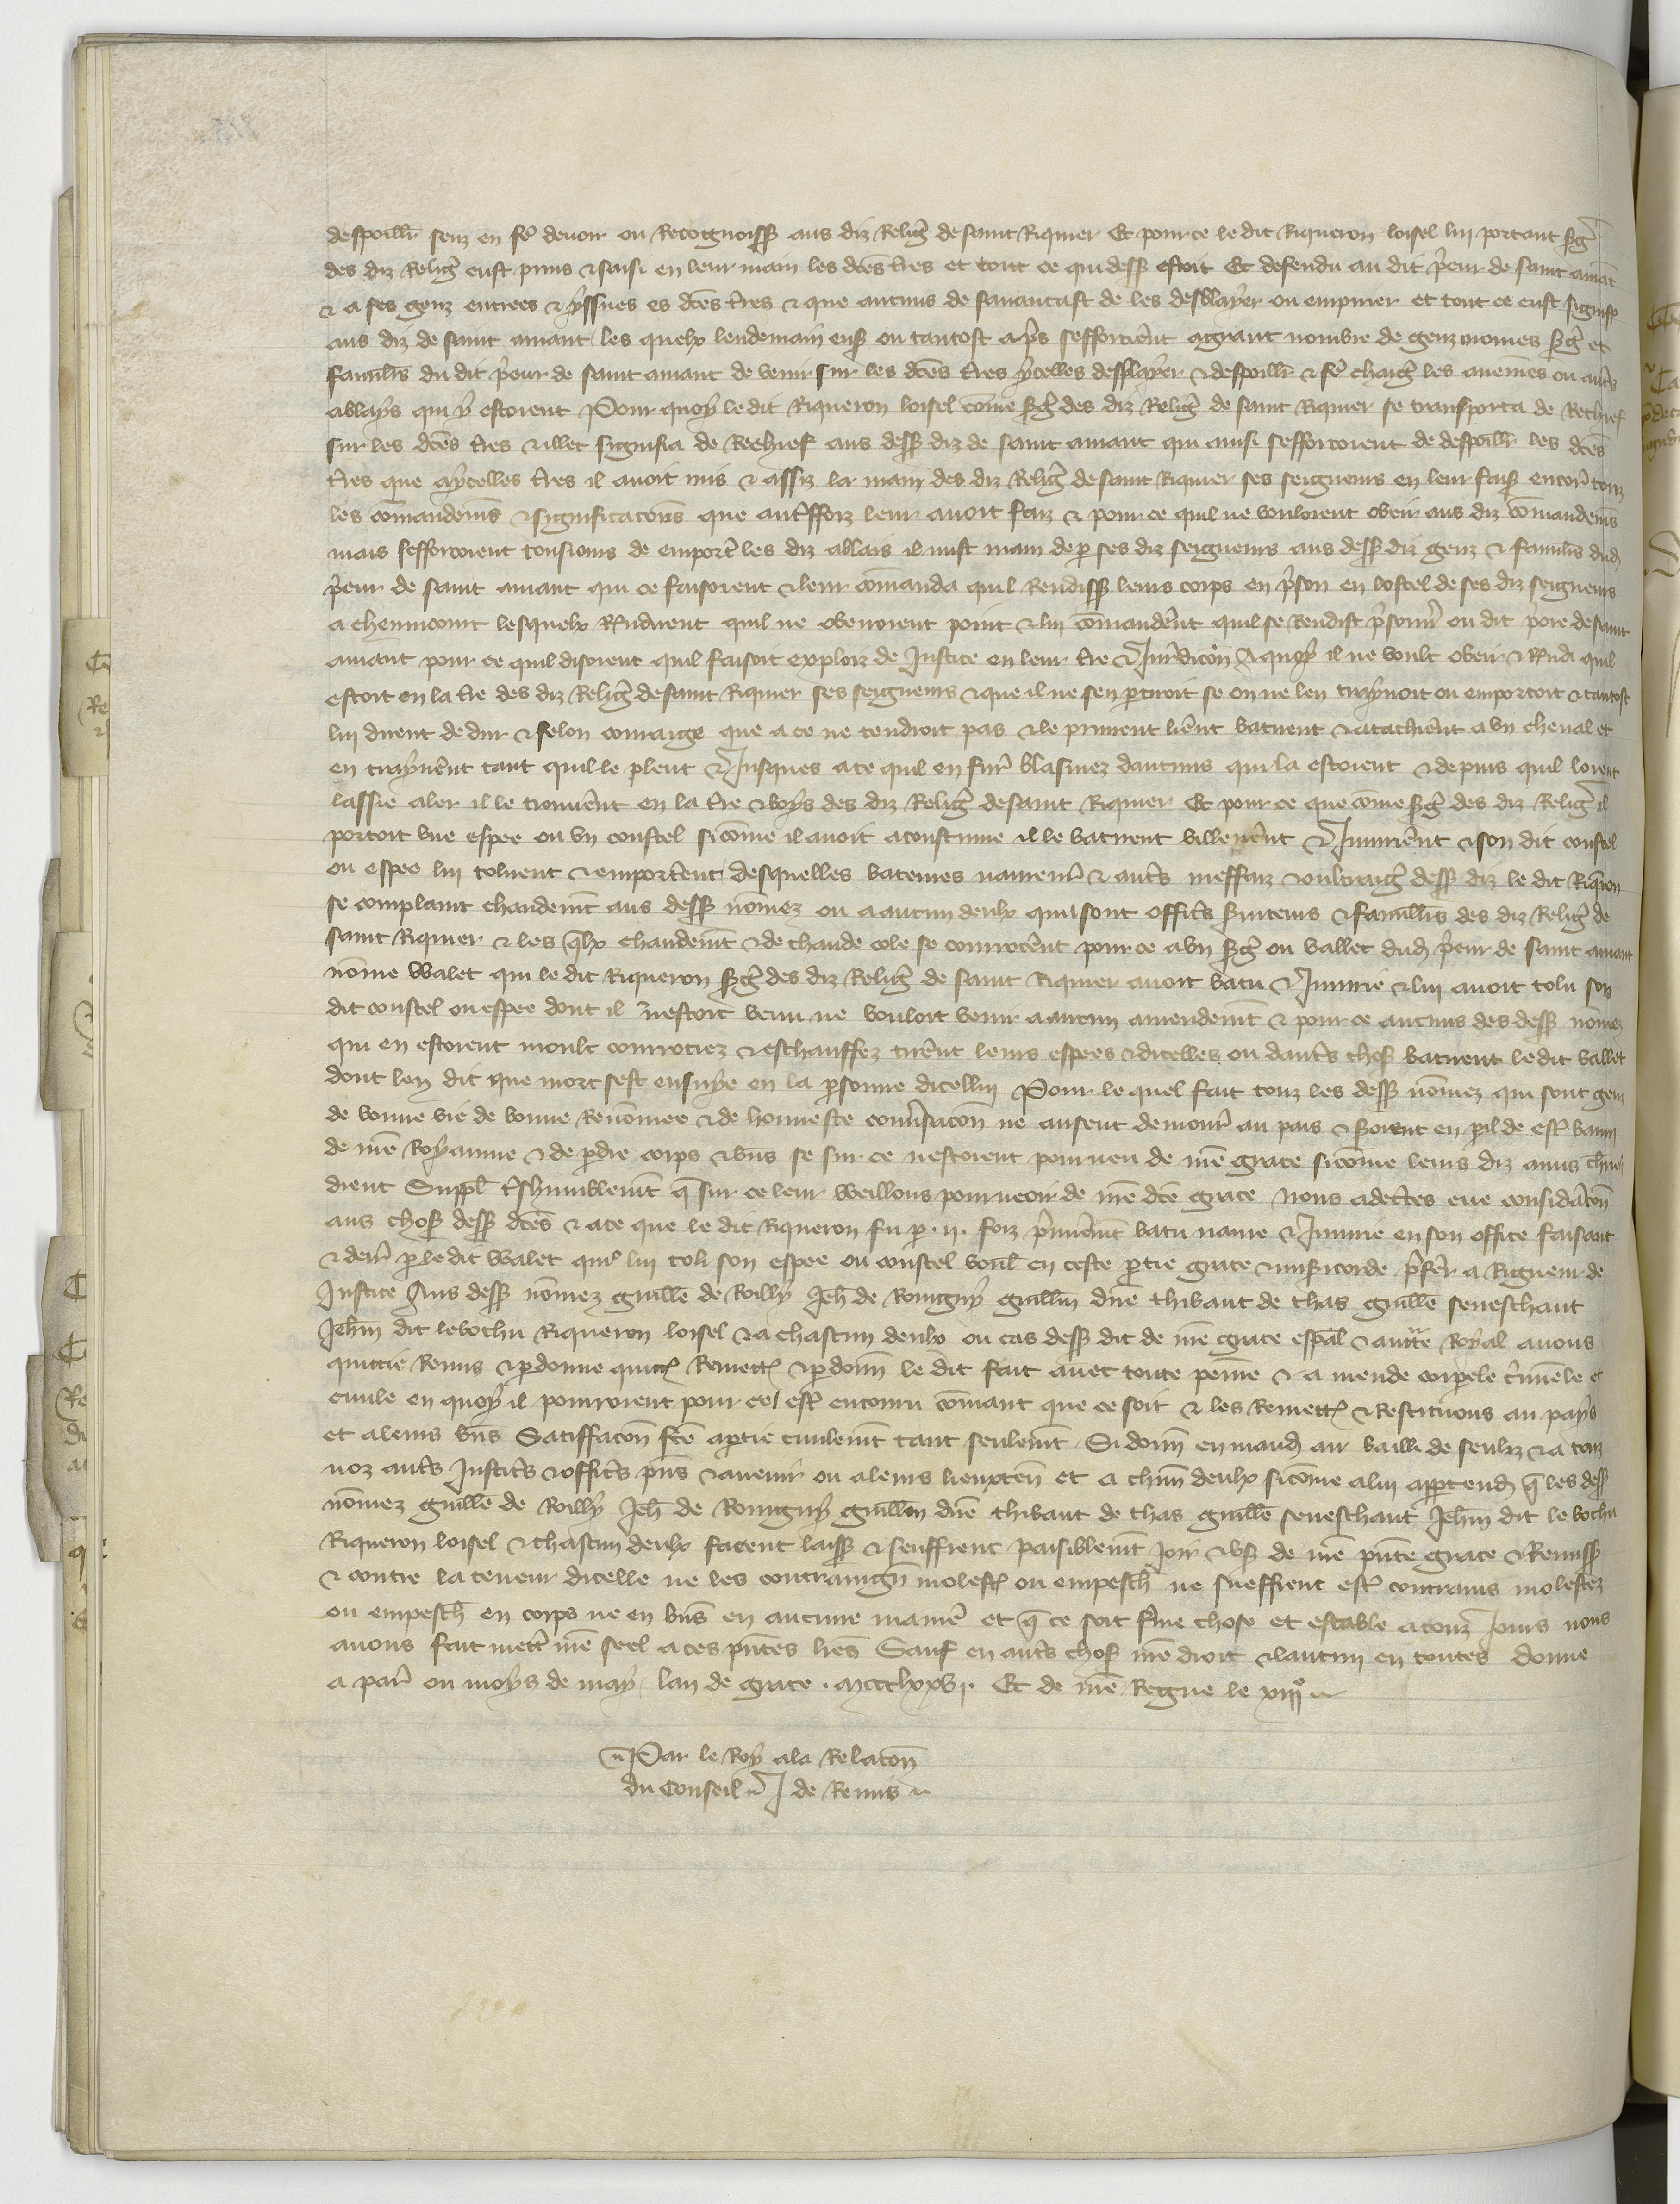 despoillier senz en fe devoir ou Recognoiss aus diz Relig de saint Riquier Et pour ce le dit Riqueron loisel lui portant sg
des diz Relig eust prins & saisi en leur main les dces tres et tout ce qui dess estoit Et defendu au dit preur de saint amat
& a ses genz entrees & yssues es dces tres & que aucuns de savancast de les desblayer ou empirier et tout ce eust signif
aus diz de saint amant les quelx lendemain ens ou tantost apres sefforcient a grant nombre de genz moines sg et
famills du dit preur de saint amant de venir sur les dces tres ycelles desblayer & despoillr & fe charg les avenines ou auts
ablays qui y estoient Pour quoy le dit Riqueron loisel come sg des diz Relig de saint Riquier se transporta de Rechief
sur les dces tres & illec signifia de Rechief aus dess diz de saint amant qui ainsi sefforcoient de despoillr les dces
tres que a ycelles tres il avoit mis & assiz la main des diz Relig de saint Riquier ses seigneurs en leur fais encor touz
les comandemens & significacons que autffoiz leur avoit faiz & pour ce quil ne vouloient obeir aus diz comandemens
mais sefforcoient tousjours de emport les diz ablais il mist main de p ses diz seigneurs aus dess diz genz & famills dud
preur de saint amant qui ce faisoient & leur comanda quil Rendiss leurs corps en pson en lostel de ses diz seigneurs
a chevincourt lesquelx Rndirent quil ne obeiroient point & lui comandent quil se Rendist prisonn ou dit prore de saint
amant pour ce quil disoient quil faisoit exploiz de Justice en leur tre & Jurdicon A quoy il ne voult obeir & Rndi quil
estoit en la tre des diz Relig de saint Riquier ses seigneurs & que il ne sen ptiroit se on ne len traynoit ou emportoit & tantost
lui dirent de dur & felon couraige que a ce ne tendroit pas & le prinrent liert batirent & atachiert a un cheval et
en traynert tant quil le pleut & Jusques a ce quil en fur blasmez daucuns qui la estoient & depuis quil lorent
lassie aler il le trouvert en la tre & boys des diz Relig de saint Riquier Et pour ce que come sg des diz Relig il
portoit une espee ou un coustel sicome il avoit acoustume il le batirent villenent & Injurient & son dit coustel
ou espee lui tolirent & emportert desquelles bateures navreur & auts meffaiz & oultraig dess diz le dit Riqron
se complaint chaudemt aus dess nomez ou a aucun deulx qui sont officrs Sviteurs & famills des diz Relig de
saint Riquier & les qlx chaudemt & de chaude cole se courrocert pour ce a un sg ou vallet dud preur de saint amant
nome walet qui le dit Riqueron sg des diz Relig de saint Riquier avoit batu & Injurie & lui avoit tolu son
dit coustel ou espee dont il nestoit venu ne vouloit venir a aucun amendemt & pour ce aucuns des dess nomez
qui en estoient moult courrociez & eschauffez tirert leurs espees & dicelles ou dauts chos batirent le dit vallet
dont len dit que mort sest ensuye en la psonne dicellui Pour le quel fait touz les dess nomez qui sont genz
de bonne vie de bonne Renomee & de honneste convsacon ne ausent demour au pais & Soient en pil de est banni
de nre Royaume & de pdre corps & bns se sur ce nestoient pourveu de nre grace sicome leurs diz amis chnelz
dient Suppl tshumblemt q sur ce leur weillons pourveoir de nre dce grace Nous adectes eue considacon
aus chos dess dces & a ce que le dit Riqueron fu p .ii. foiz premient batu navre & Injurie en son office faisant
& dern p le dit walet qui lui toli son espee ou coustel voul en ceste ptie grace & misicorde prefer a Rigueur de
Justice Aus dess nomez guille de Roilly Jeh de Rouvigny guillin dne thibaut de thas guille seneschaut
Jehin dit lebochu Riqueron loisel & a chascun deulx ou cas dess dit de nre grace espal & auctte Royal avons
quictie Remis & pdonne quictt Remett & pdonn le dit fait avec toute peine & amende corpele crimele et
civile en quoy il pourroient pour ce est encouru comant que ce soit & les Remett & Restituons au pays
et a leurs bns Satiffacon fce a ptie civilemt tant seulemt Si donn en mand au bailli de senliz & a touz
noz auts Justics & officrs pns & avenir ou a leurs lieuxten et a chun deulx sicome a lui apptend q les dess
nomez guille de Roilly Jeh de Rouvigny guillin dne thibaut de thas guille seneschaut Jehin dit le bochu
Riqueron loisel & chascun deulx facent laiss & seuffrent paisiblemt Joir & us de nre pnte grace & Remiss
& contre la teneur dicelle ne les contraingn molest ou empesch ne sueffrent est contrains molestez
ou empesch en corps ne en bns en aucune manie et q ce soit fme chose et estable a touz Jours nous
avons fait mett nre seel a ces pntes lres Sauf en auts chos nre droit & lautrui en toutes donne
a Par ou moys de may lan de grace .mccclxxvi. Et de nre Regne le xiiio
Par le Roy a la Relacon
du Conseil J de Remis